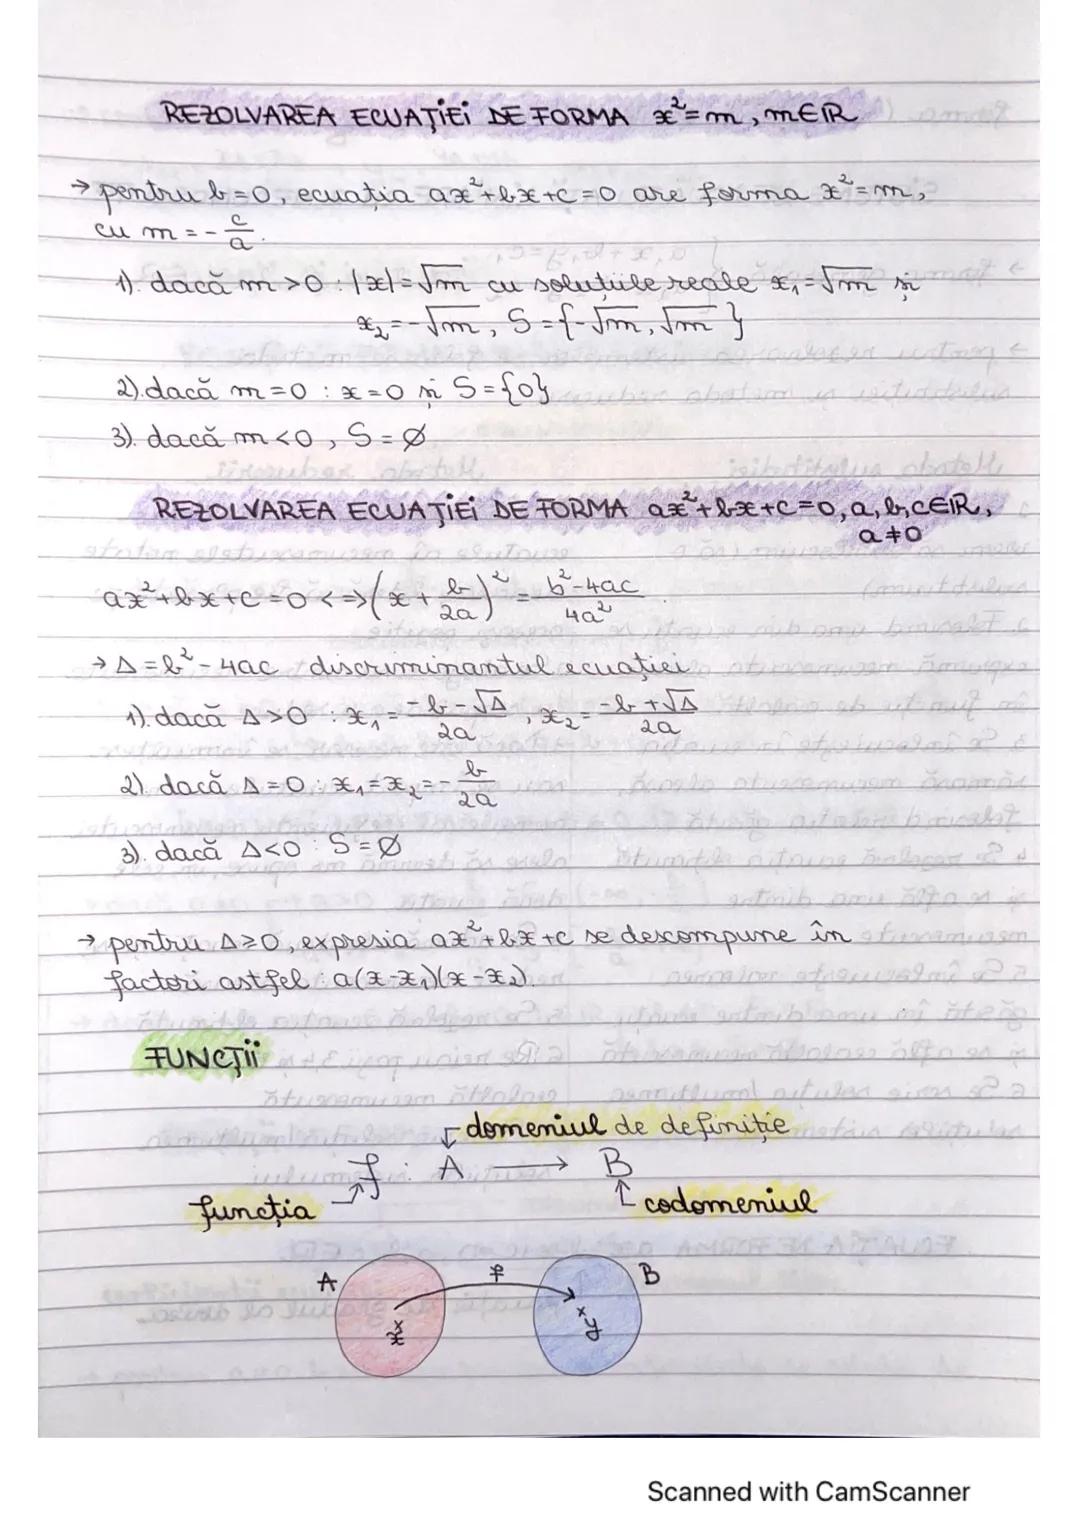 REZOLVAREA ECUAȚIEI DE FORMA x²=m, m∈ℝ
→ pentru b=0, ecuația ax²+bx+c=0 are forma x²=m,
cu m=-c/a.
1). dacă m>0 : |x|=√m cu soluțiile reale x₁=√m și
x₂=-√m, S={-√m, √m}
2). dacă m=0 : x=0 și S={0}
3). dacă m<0, S=∅
REZOLVAREA ECUAȚIEI DE FORMA ax²+bx+c=0, a,b,c∈ℝ,
a≠0
ax²+bx+c=0 <=> (x+b/2a)²=b²-4ac/4a²
→ Δ=b²-4ac discriminantul ecuației
1). dacă Δ>0 : x₁=-b-√Δ/2a, x₂=-b+√Δ/2a
2). dacă Δ=0 : x₁=x₂=-b/2a
3). dacă Δ<0 : S=∅
→ pentru Δ≥0, expresia ax²+bx+c se descompune în
factori astfel : a(x-x₁)(x-x₂).
FUNCȚII
domeniul de definiție
f : A → B
funcția
codomeniul
A f B
x y
Scanned with CamScanner